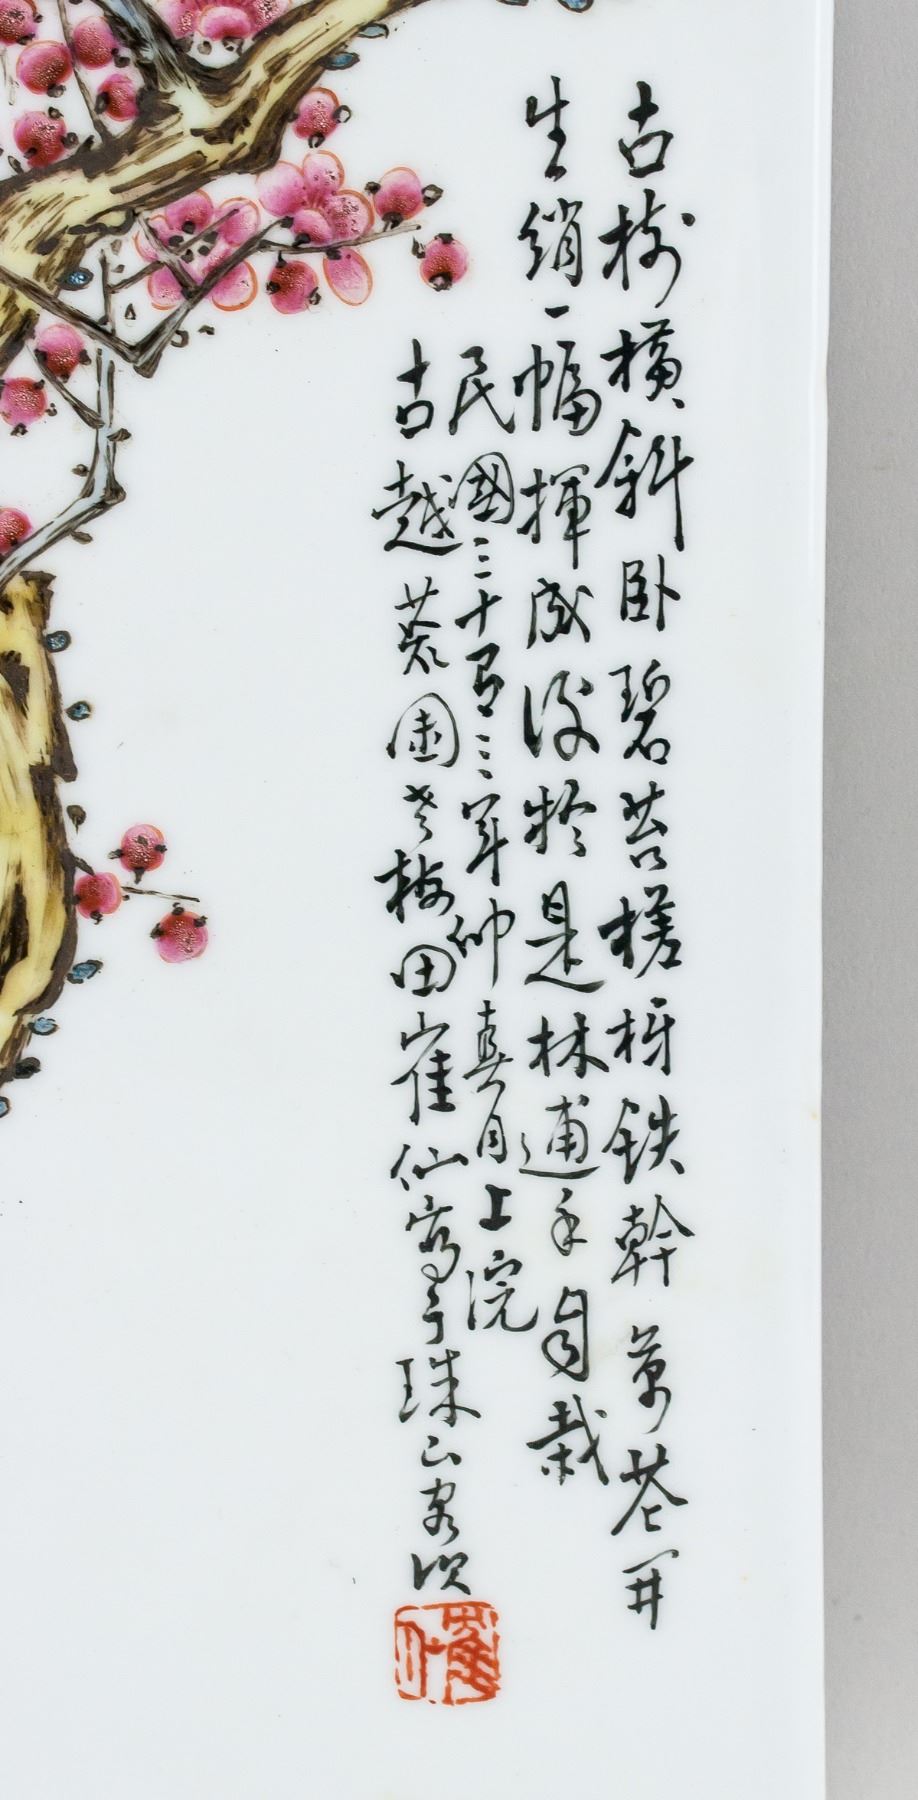 古樹橫斜卧碧苔槎枒鉄幹萬花開
生綃一幅揮成後於是林逋手自栽
民國三十有三年仲真月上浣
古越慕園老梅田崔仙寫于珠山客次